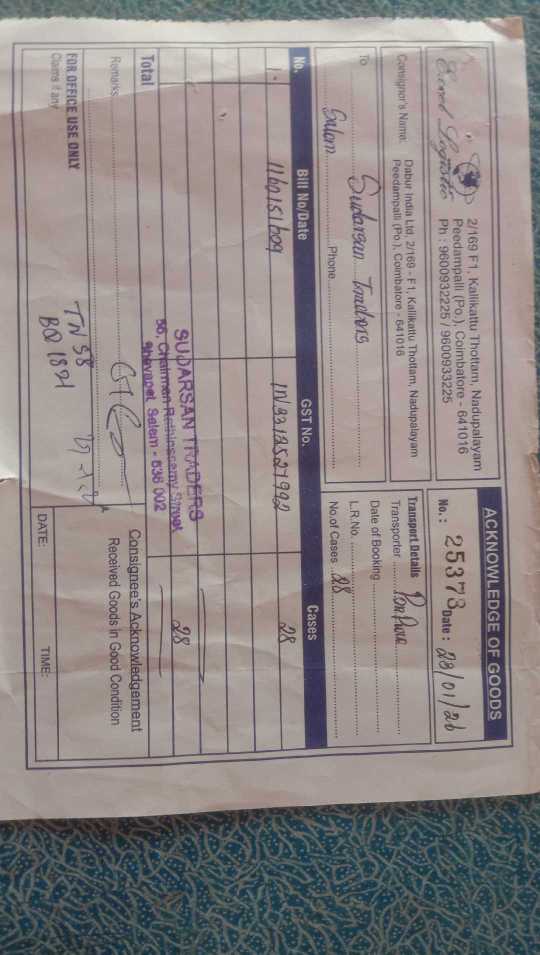 Excel Logistic
2/169 F1, Kallikattu Thottam, Nadupalayam
Peedampalli (Po.), Coimbatore - 641016
Ph : 9600932225 / 9600933225
ACKNOWLEDGE OF GOODS
No. : 25373 Date : 28/01/26
Consignor's Name: Dabur India Ltd, 2/169 - F1, Kallikattu Thottam, Nadupalayam
Peedampalli (Po.), Coimbatore - 641016
Transport Details
Transporter
Date of Booking
L.R.No.
No.of Cases 28
To Sudarsan Traders
Salem
Phone
No. Bill No/Date GST No. Cases
1. 1160151609 28
28
SUDARSAN TRADERS
56, Chairman Rathinasamy Street
Shevapet, Salem - 636 002
Total
Remarks:
Consignee's Acknowledgement
Received Goods in Good Condition
FOR OFFICE USE ONLY
Claims if any
TN 38
BQ 1821
DATE: TIME: